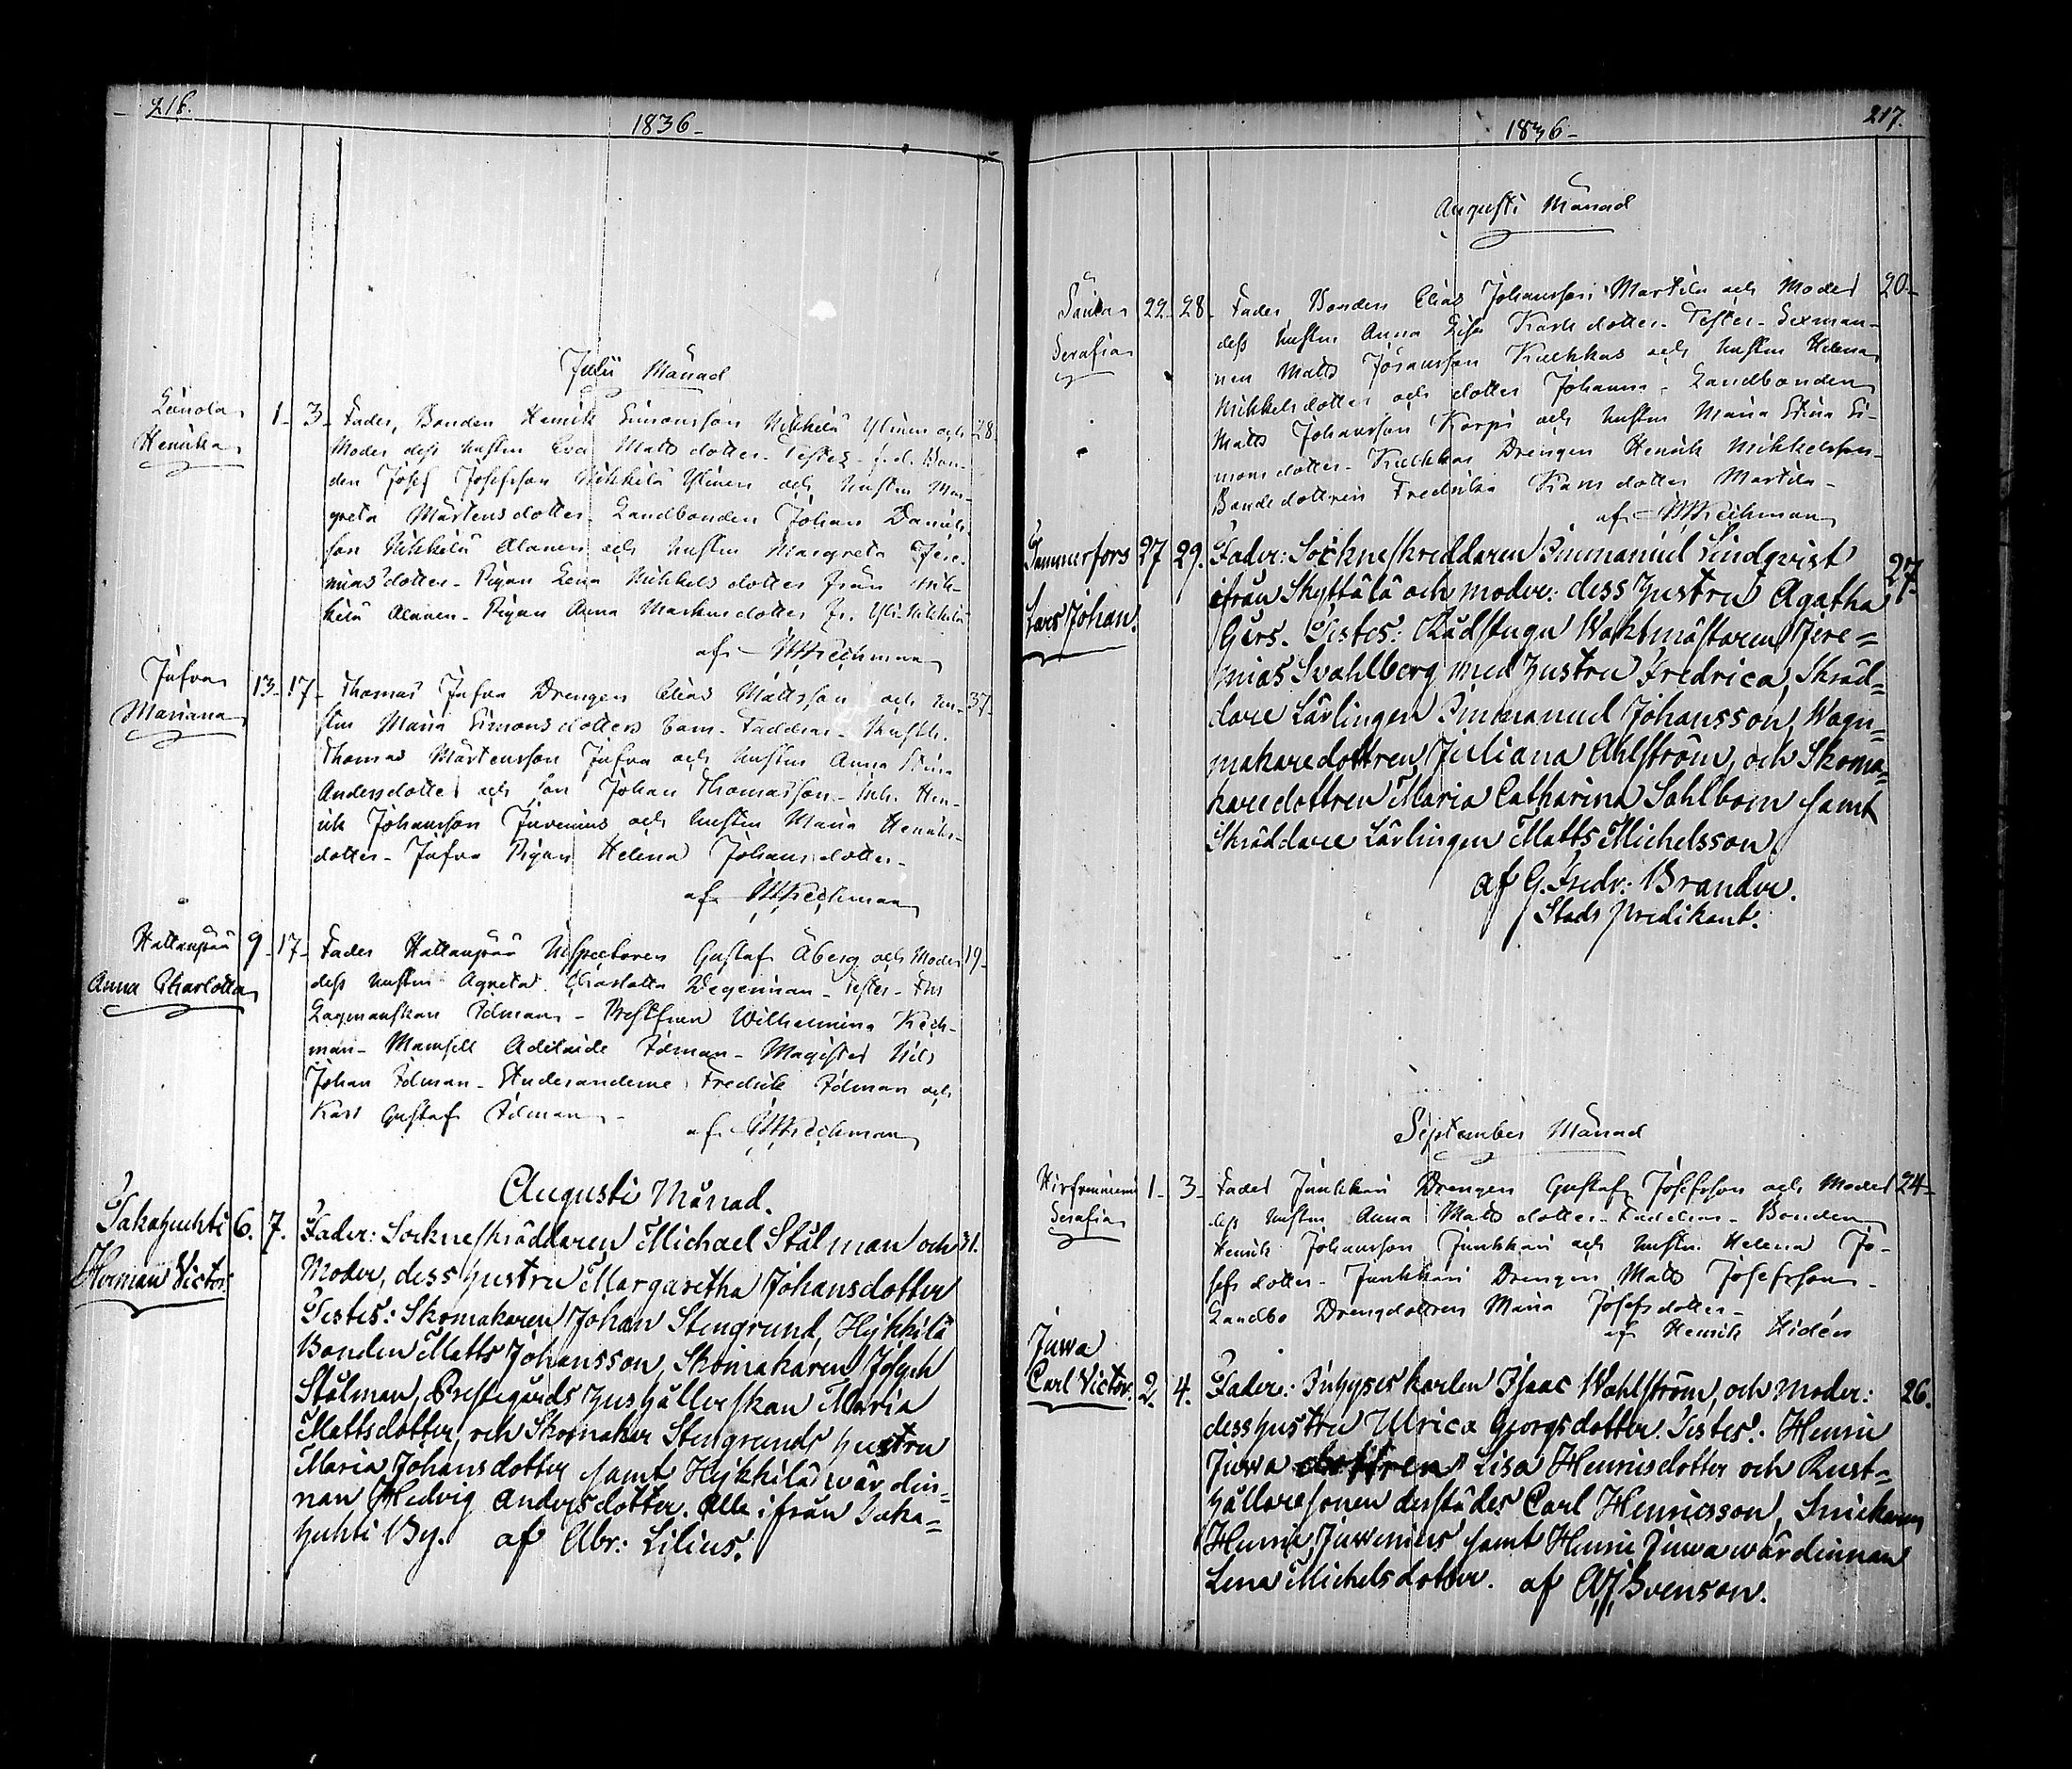 216.
1836-
Julii Månad
Lunola
Henrika
1- 3- Fader, Bonden Henrik Simonsson Nikkilä Ylinen och 28-
Moder dess hustru Eva Matts dotter. Testes. f.d. Bon-
den Josef Josefsson Nikkilä Ylinen och hustru Mar-
greta Mårtensdotter. Landbonden Johan Daniels-
son Nikkilä Alanen och hustru Margreta Jere-
mias dotter. Pigan Lena Mikkels dotter från Nik-
kilä Alanen. Pigan Anna Markusdotter fr. Yli-Nikkilä
af Kechman
Jufva
Mariana
13- 17- Thomas Jufva Drengen Elias Mattsson och hu- 37-
stru Maria Simonsdotters barn. Faddrar. Rusth.
Thomas Mårtensson Jufva och hustru Anna Stina
Andersdotter och son Johan Thomasson. Inh. Hen-
rik Johansson Juvenius och hustru Maria Henriks-
dotter. Jufva Pigan Helena Johans dotter.
af Kechman
Hattanpää
Anna Charlotta
9- 17- Fader Hattanpää Inspectoren Gustaf Åberg och Moder 19-
dess hustru Agneta Charlotta Wegerman. Testes. Fru
Lagmanskan Idman. Prestfrun Wilhelmina Kech-
man. Mamsell Adelaide Idman. Magister Nils
Johan Idman. Studerandene Fredrik Idman och
Karl Gustaf Idman.
af Kechman
Augusti Månad.
Takahuhti
Herman Victor.
6. 7. Fader: Sockneskräddaren Michael Stålman och 31.
Moder, dess hustru Margaretha Johansdotter
Testes: Skomakaren Johan Stengrund, Hejkkilä
Bonden Matts Johansson, Skomakaren Joseph
Stålman, Prestegårds hushållerskan Maria
Mattsdotter, och Skomakar Stengrunds hustru
Maria Johansdotter samt Hejkkilä wärdin-
nan Hedvig Andersdotter. Alle ifrån Taka=
huhti By. af Abr: Lilius.
217.
1836-
Augusti Månad
Serafia
22- 28- Fader, Bonden Elias Johansson Martila och Moder 20-
dess hustru Anna Lisa Karls dotter. Testes. Sexman-
nen Matts Johansson Kaukkas och hustru Helena
Mikkelsdotter och dotter Johanna. Landbonden
Matts Johansson Korpi och hustru Maria Stina Si-
mons dotter. Drengen Henrik Mikkelsson.
Bondedottren Fredrika Karls dotter Martila.
af Kechman
Tammerfors
Lars Johan.
27 29. Fader: Sockneskreddaren Immanuel Lindqvist 27.
ifrån Skyttälä och moder: dess hustru Agatha
Gers. Testes: Rådstugu Waktmästaren Jere=
mias Svahlberg med hustru Fredrica, Skräd=
dare Lärlingen Immanuel Johansson, Wagn=
makaredottren Juliana Ahlström, och Skoma=
karedottren Maria Catharina Sahlbom samt
Skräddare Lärlingen Matts Michelsson.
af G. Fredr: Brander.
Stads predikant.
September Månad
Serafia
1- 3- Fader Junkkari Drengen Gustaf Josefsson och Moder 24-
dess hustru Anna Matts dotter. Faddrar. Bonden
Henrik Johansson Junkkari och hustru Helena Jo-
sefs dotter. Junkkari Drengen Matts Josefsson.
Landbo Drengdottren Maria Josefs dotter.
af Henrik Hidén
Juwa
Carl Victor.
2. 4. Fader: Inhyses karlen Isaac Wahlström, och moder: 26.
dess hustru Ulrica Georgsdotter. Testes: Henric
Juwa dottren Lisa Henricsdotter och Rust=
hållaresonen derstädes Carl Henricsson, Snickaren
Henric Juwenius samt Henric Juwa wärdinnan
Lena Michelsdotter. af A. J. Svenson.